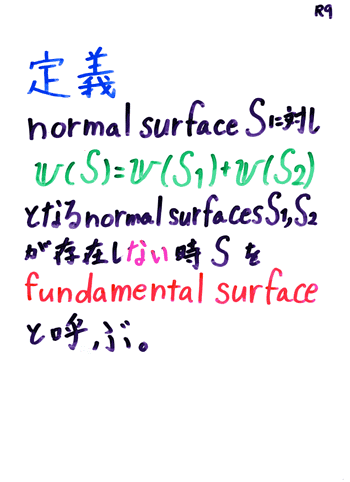 R9
定義
normal surface Sに対し
𝕧(S)=𝕧(S₁)+𝕧(S₂)
となるnormal surfaces S₁,S₂
が存在しない時 S を
fundamental surface
と呼ぶ。